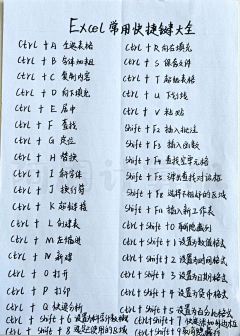 Excel常用快捷键大全
Ctrl + A 全选表格
Ctrl + B 字体加粗
Ctrl + C 复制内容
Ctrl + D 向下填充
Ctrl + E 居中
Ctrl + F 查找
Ctrl + G 定位
Ctrl + H 替换
Ctrl + I 斜字体
Ctrl + J 换行符
Ctrl + K 超链接
Ctrl + L 创建表
Ctrl + M 左缩进
Ctrl + N 新建
Ctrl + O 打开
Ctrl + P 打印
Ctrl + Q 快速分析
Ctrl + Shift + 6 设置为科学计数格式
Ctrl + Shift + 8 选定使用的区域
Ctrl + R 向右填充
Ctrl + S 保存文件
Ctrl + T 超级表格
Ctrl + U 下划线
Ctrl + V 粘贴
Shift + F2 插入批注
Shift + F3 插入函数
Shift + F4 查找空单元格
Shift + F5 弹出查找对话框
Shift + F8 选择不相邻的区域
Shift + F11 插入新工作表
Ctrl + Shift + 0 取消隐藏列
Ctrl + Shift + 1 设置为数值格式
Ctrl + Shift + 2 设置为时间格式
Ctrl + Shift + 3 设置为日期格式
Ctrl + Shift + 4 设置为货币格式
Ctrl + Shift + 5 设置为百分比格式
Ctrl + Shift + 7
Ctrl + Shift + 9 取消隐藏行